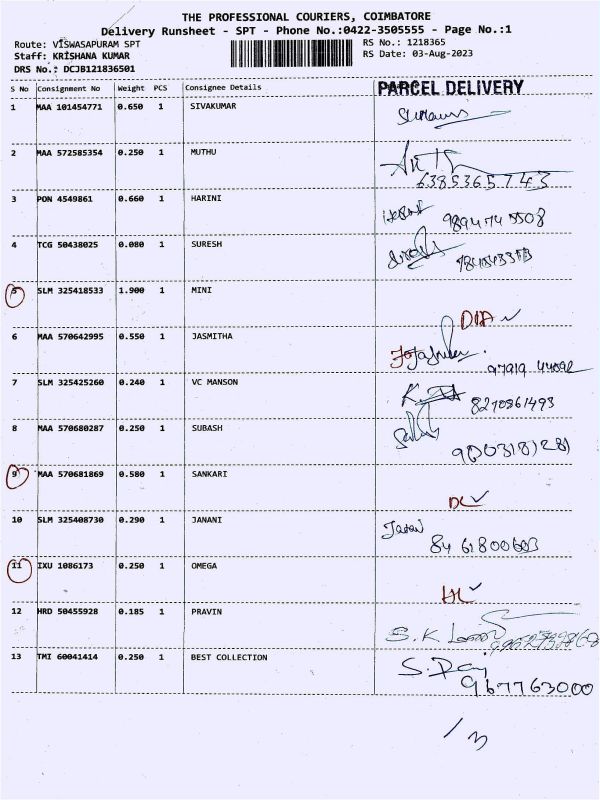 THE PROFESSIONAL COURIERS, COIMBATORE
Delivery Runsheet - SPT - Phone No.:0422-3505555 - Page No.:1
Route: VISWASAPURAM SPT RS No.: 1218365
Staff: KRISHANA KUMAR RS Date: 03-Aug-2023
DRS No.: DCJB121836501
S No Consignment No Weight PCS Consignee Details PARCEL DELIVERY
1 MAA 101454771 0.650 1 SIVAKUMAR
2 MAA 572585354 0.250 1 MUTHU
6385365743
3 PON 4549861 0.660 1 HARINI
9894745508
4 TCG 50438025 0.080 1 SURESH
5 SLM 325418533 1.900 1 MINI
6 MAA 570642995 0.550 1 JASMITHA
97919 44092
7 SLM 325425260 0.240 1 VC MANSON
8270861493
8 MAA 570680287 0.250 1 SUBASH
9003187281
9 MAA 570681869 0.580 1 SANKARI
DL
10 SLM 325408730 0.290 1 JANANI
8461800603
11 IXU 1086173 0.250 1 OMEGA
12 HRD 50455928 0.185 1 PRAVIN
S.K
13 TMI 60041414 0.250 1 BEST COLLECTION
967763000